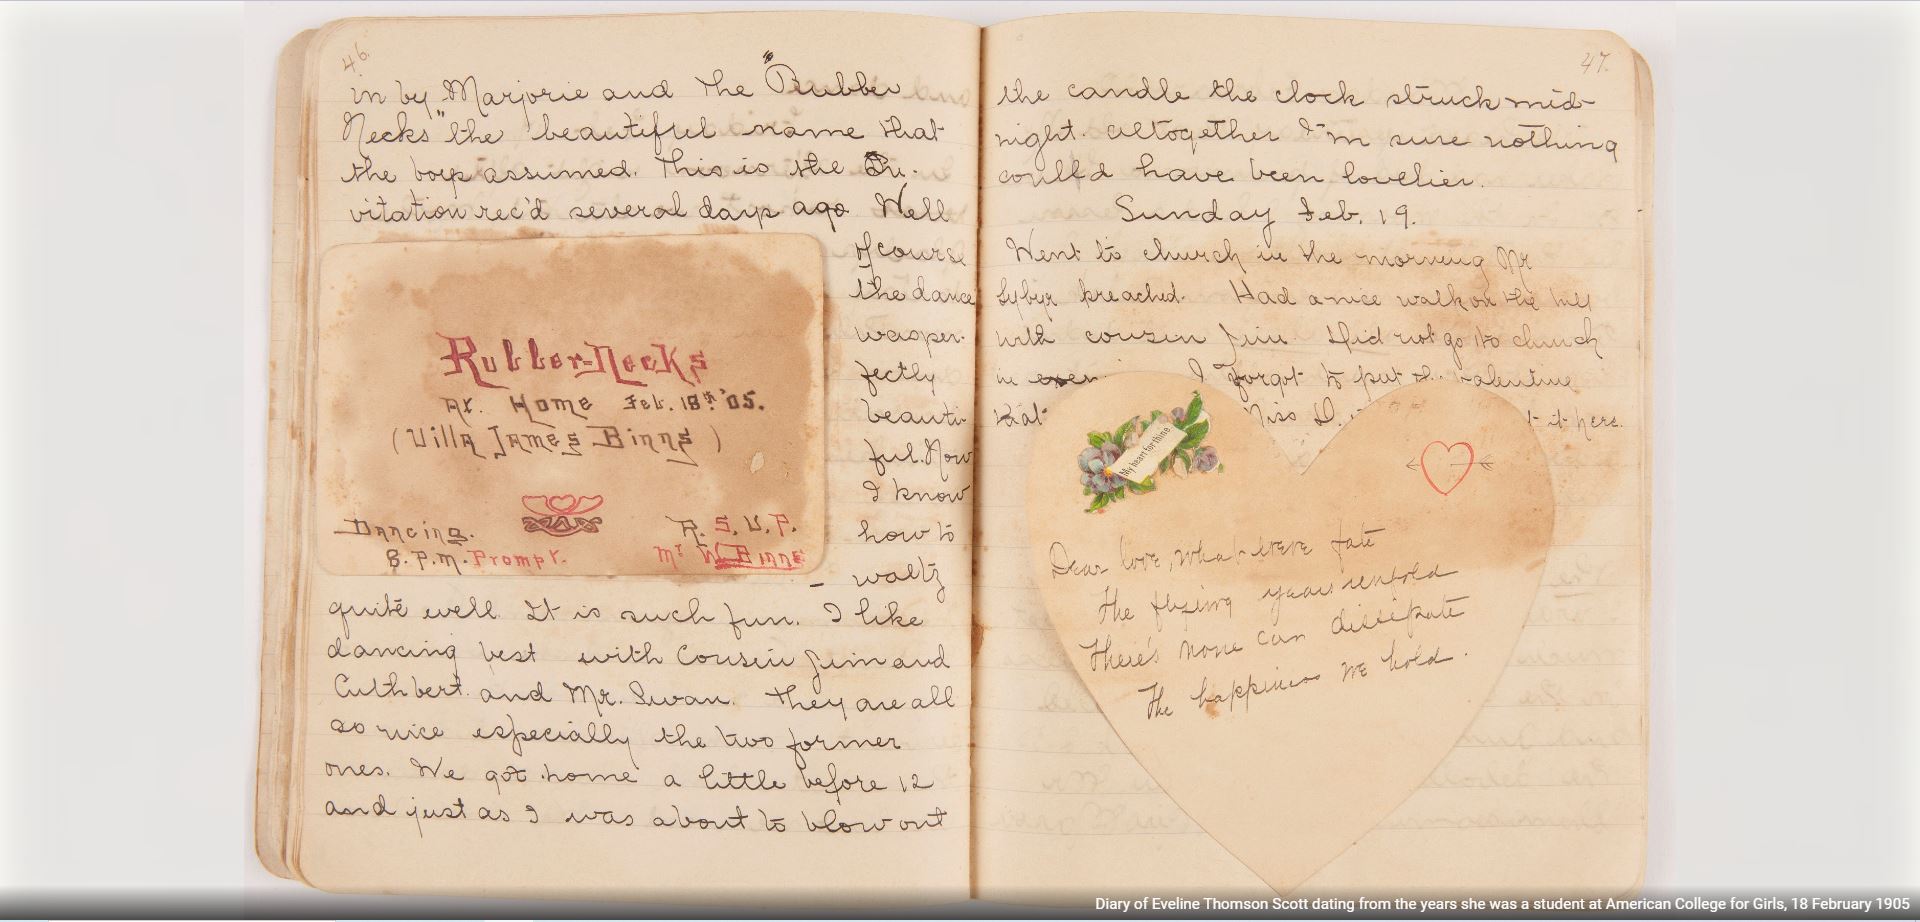 46.
in by Marjorie and the "Rubber
Necks" the beautiful name that
the boys assumed. This is the In-
vitation rec'd several days ago. Well
of course
the dance
was per-
fectly
beauti-
ful. Now
I know
how to
waltz
Rubber-Necks
At Home Feb. 18th '05.
(Villa James Binns)
Dancing.
8. P.M. Prompt.
R.S.V.P.
Mr W Binns
quite well. It is such fun. I like
dancing best with Cousin Jim and
Cuthbert and Mr. Swan. They are all
so nice especially the two former
ones. We got home a little before 12
and just as I was about to blow out
47.
the candle the clock struck mid-
night. Altogether I'm sure nothing
could have been lovelier.
Sunday Feb. 19.
Went to church in the morning Mr
preached. Had a nice walk on the hill
with cousin Jim. Did not go to church
in I forgot to put the valentine
that Miss D. it here.
My heart for thine
Dear love, what ere fate
The flying years unfold
There's none can dissipate
The happiness we hold.
Diary of Eveline Thomson Scott dating from the years she was a student at American College for Girls, 18 February 1905